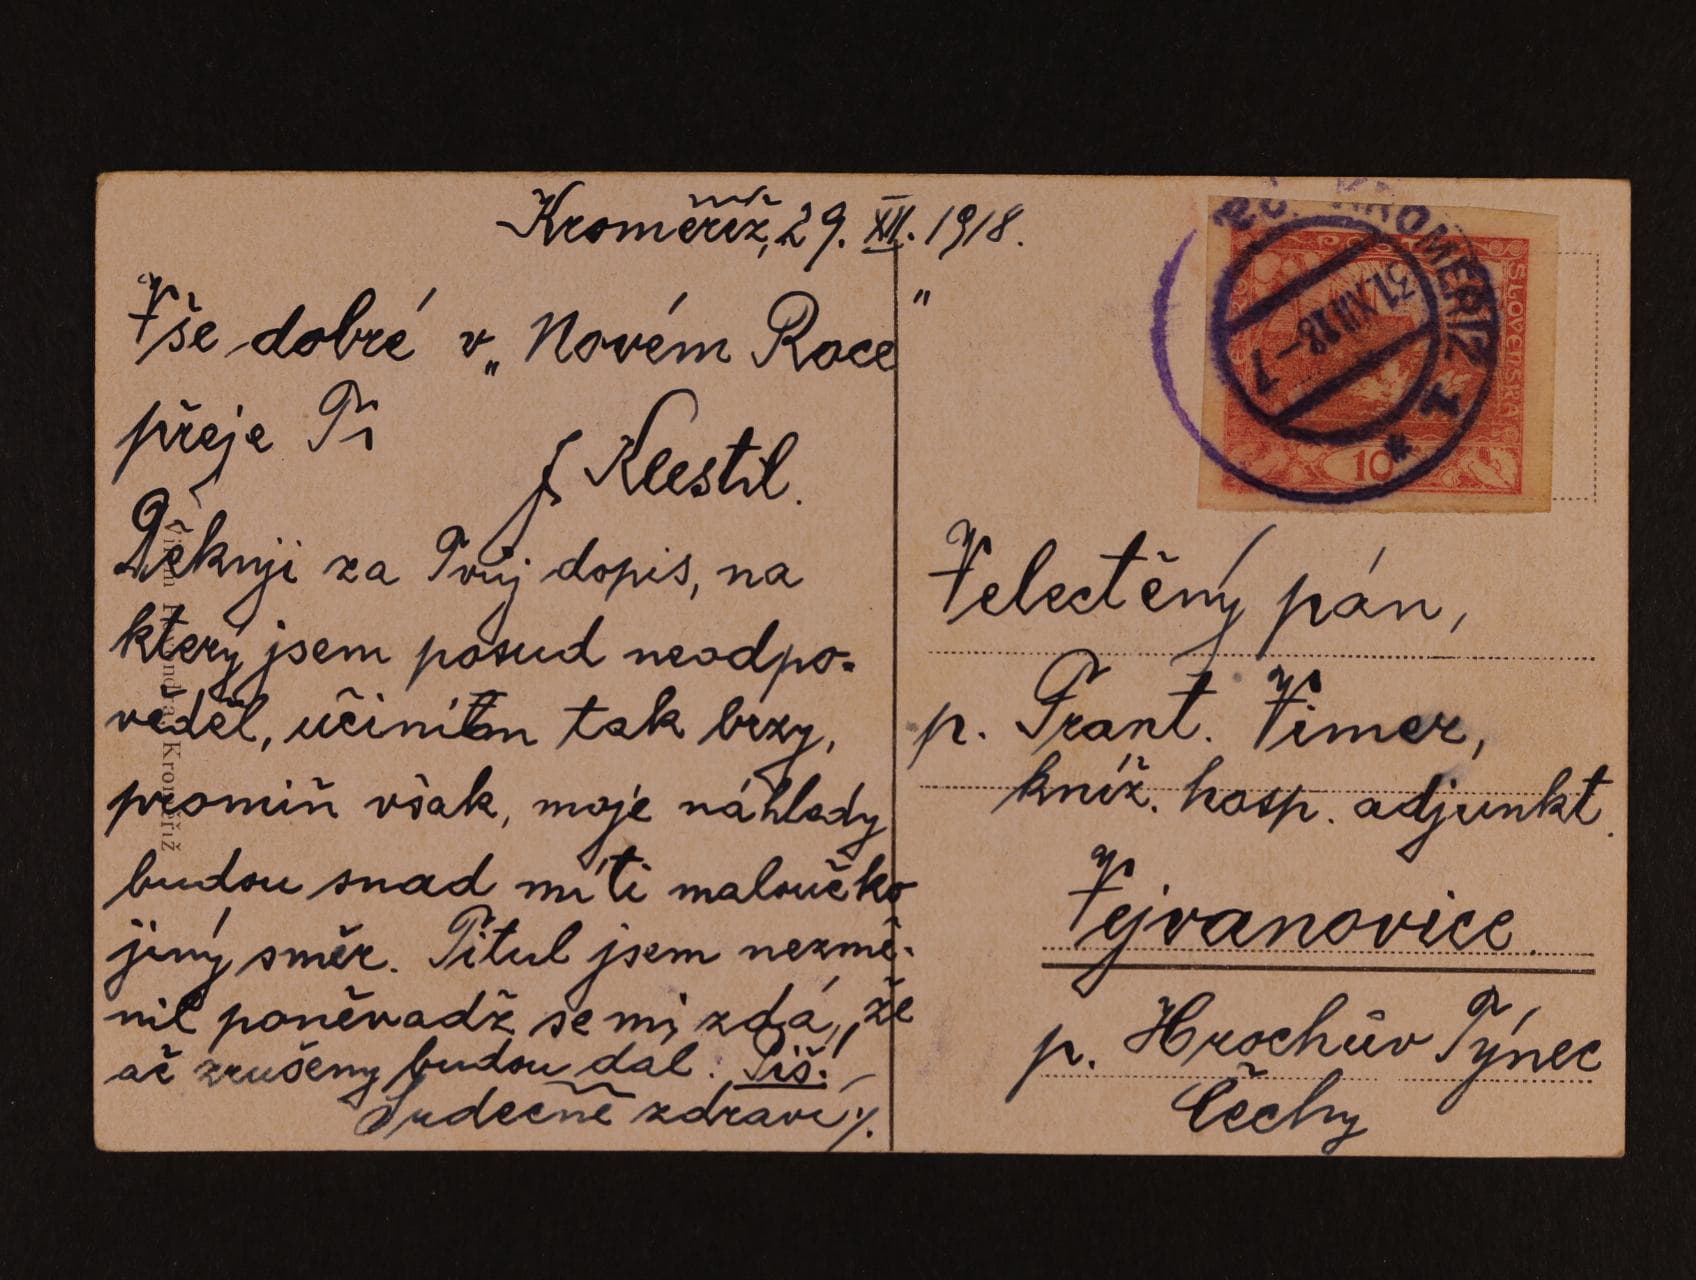 Kroměříž, 29. XII. 1918.
Vše dobré v „Novém Roce"
přeje Ti
J Klestil.
Děkuji za Tvůj dopis, na
který jsem posud neodpo-
věděl, učiním tak brzy,
promiň však, moje náhledy
budou snad míti maloučko
jiný směr. Titul jsem nezmě-
nil poněvadž se mi zdá, že
ač zrušeny budou dál. Piš!
Srdečně zdraví
Velectěný pán,
p. Frant. Vimer,
kníž. hosp. adjunkt
Vejvanovice
p. Hrochův Týnec
Čechy
KROMĚŘÍŽ 1
31.XII.18-7
POŠTA
SLOVENSKÁ
10
Kroměříž